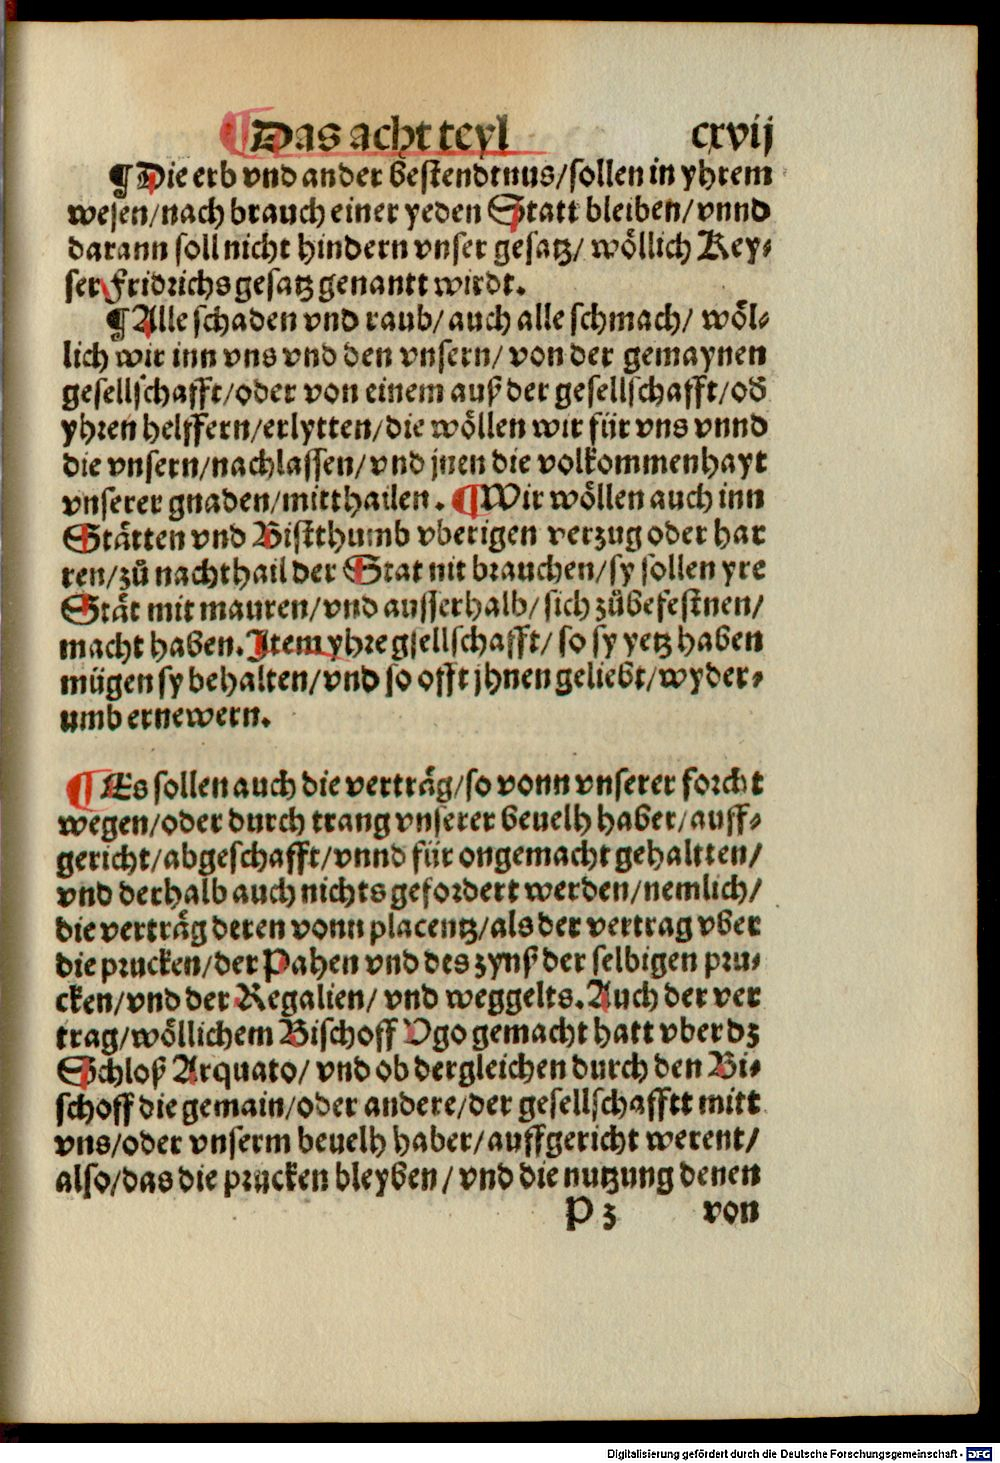 ¶ Das acht teyl cxvij
¶ Die erb vnd ander bestendtnus/sollen in yhrem
wesen/nach brauch einer yeden Statt bleiben/vnnd
darann soll nicht hindern vnser gesatz/ wöllich Key⸗
ser Fridrichs gesatz genantt wirdt.
¶ Alle schaden vnd raub/auch alle schmach/ wöl⸗
lich wir inn vns vnd den vnsern/ von der gemaynen
gesellschafft/oder von einem auß der gesellschafft/od
yhren helffern/erlytten/die wöllen wir für vns vnnd
die vnsern/nachlassen/vnd jnen die volkommenhayt
vnserer gnaden/mitthailen. ¶ Wir wöllen auch inn
Stätten vnd Bistthumb vberigen verzug oder har
ren/zů nachthail der Stat nit brauchen/sy sollen yre
Stät mit mauren/vnd ausserhalb/sich zůbefestnen/
macht haben. Item yhre gsellschafft/ so sy yetz haben
mügen sy behalten/vnd so offt jhnen geliebt/wyder⸗
umb ernewern.
¶ Es sollen auch die verträg/so vonn vnserer forcht
wegen/oder durch trang vnserer beuelh haber/auff⸗
gericht/abgeschafft/vnnd für ongemacht gehaltten/
vnd derhalb auch nichts gefordert werden/nemlich/
die verträg deren vonn placentz/als der vertrag vber
die prucken/der Pahen vnd des zynß der selbigen pru⸗
cken/vnd der Regalien/ vnd weggelts. Auch der ver
trag/wöllichem Bischoff Vgo gemacht hatt vber dz
Schloß Arquato/ vnd ob dergleichen durch den Bi⸗
schoff die gemain/oder andere/der gesellschafftt mitt
vns/oder vnserm beuelh haber/auffgericht werent/
also/das die prucken bleyben/ vnd die nutzung denen
P 3 von
Digitalisierung gefördert durch die Deutsche Forschungsgemeinschaft - DFG